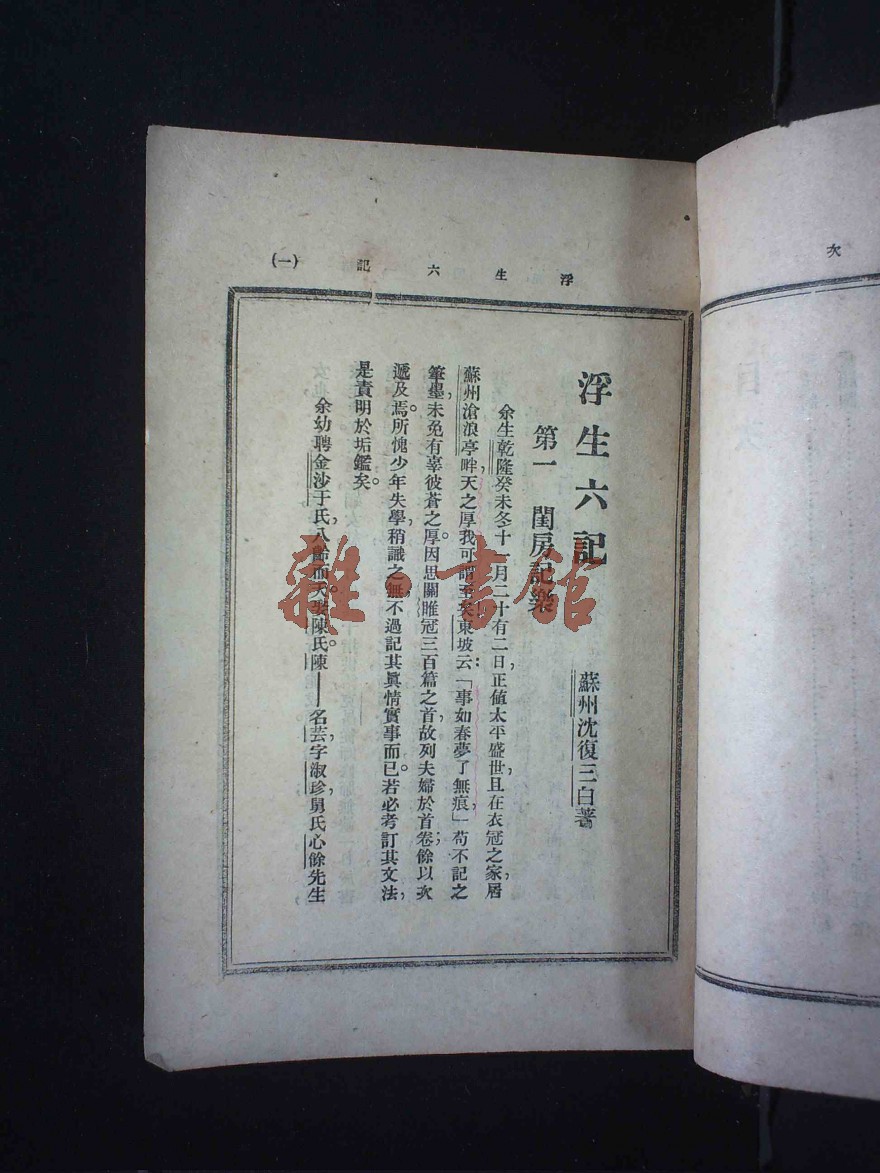 浮生六記 (一)
浮生六記
蘇州沈復三白著
第一 閨房記樂
余生乾隆癸未冬十一月二十有二日,正值太平盛世,且在衣冠之家,居
蘇州滄浪亭畔,天之厚我,可謂至矣。東坡云:「事如春夢了無痕,」苟不記之
筆墨,未免有辜彼蒼之厚。因思關雎冠三百篇之首,故列夫婦於首卷;餘以次
遞及焉。所愧少年失學,稍識之無,不過記其眞情實事而已。若必考訂其文法,
是責明於垢鑑矣。
余幼聘金沙于氏,八齡而夭。娶陳氏。陳——名芸,字淑珍,舅氏心餘先生
女也,
次
雜·書館